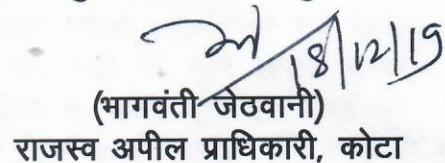 18/12/19
(भागवंती जेठवानी)
राजस्व अपील प्राधिकारी, कोटा